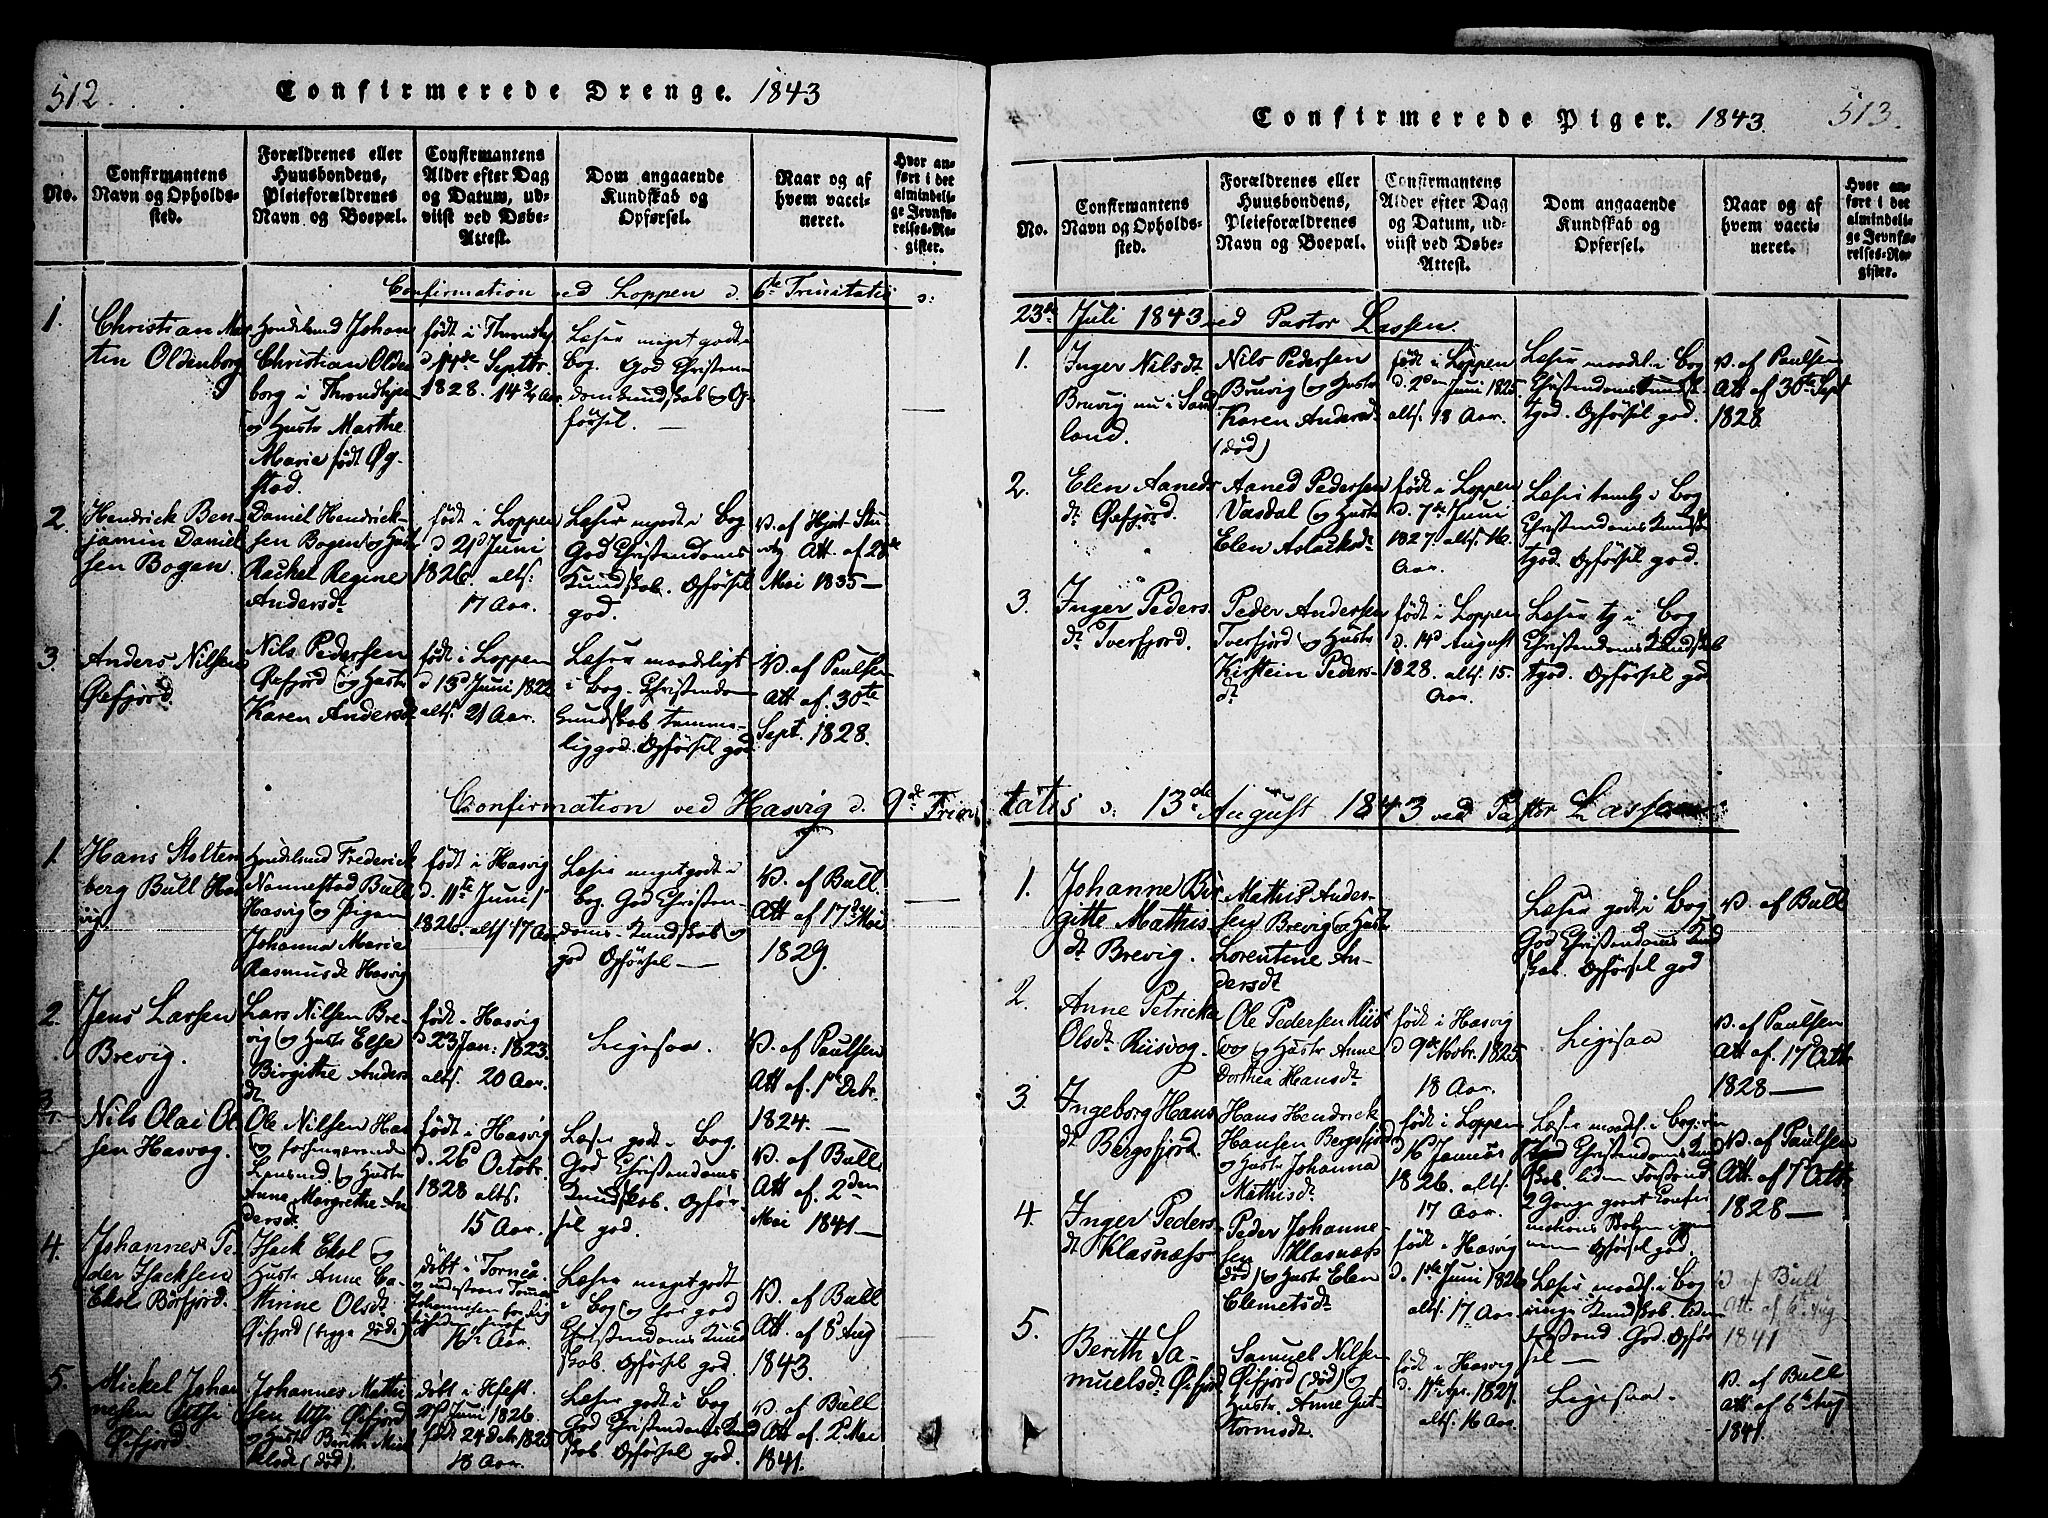 512.
Confirmerede Drenge. 1843
No.
Confirmantens
Navn og Opholds-
sted.
Forældrenes eller
Huusbondens,
Pleieforældrenes
Navn og Boepæl.
Confirmantens
Alder efter Dag
og Datum, ud-
viist ved Døbe-
Attest.
Dom angaaende
Kundskab og
Opførsel.
Naar og af
hvem vacci-
neret.
Hvor an-
ført i det
almindeli-
ge Jevnfø-
relses-Re-
gister.
Confirmation ved Loppen d. 6te Trinitatis o:
1.
Christian Mor
ten Oldenborg
Handelsmd Johan
Christian Olden
borg i Throndhjem
og Hustr Marthe
Marie født Øy-
stad.
født i Throndhj
d 11te Septbr
1828. 14 3/4 Aar
Læser meget godt i
bog. God Christen-
domskundskab og Op-
førsel.
2.
Hendrick Ben-
jamin Daniel
sen Bogen.
Daniel Hendrick-
sen Bogen og Hustr
Rachel Regine
Andersdt
født i Loppen
d 21d Juni
1826. altf:
17 Aar.
Læser mgodt i bog
God Christendoms
Kundskab. Opførsel
god.
V. af Hjort
Att. af 28de
Mai 1835
3.
Anders Nilsen
Øxfjord
Nils Pedersen
Øxfjord og Hustr
Karen Andersdt
født i Loppen
d 15d Juni 1822
altf. 21 Aar.
Læser maadeligt
i bog. Christendoms
kundskab temme-
lig god. Opførsel god
V. af Paulsen
Att af. 30te
Sept. 1828.
Confirmation ved Hasvig d. 9de Trini
1.
Hans Stolten
berg Bull Has
vig
Handelsmd Frederick
Nannestad Bull
Hasvig og Pigen
Johanna Marie
Rasmusdt Hasvig
født i Hasvig
d. 11te Juni
1826. altf. 17 Aar
Læser meget godt i
bog. God Christen-
doms-Kundskab og
god Opførsel
V. af Bull.
Att af 17d Mai
1829.
2.
Jens Larsen
Brevig.
Lars Nilsen Bre-
vig og Hustr Else
Birgithe Anders
dt.
født i Hasvig
d 23 Jan: 1823.
altf. 20 Aar.
Ligesaa.
V. af Paulsen
Att af. 1te Debr.
1824.
3.
Nils Olai Ol-
sen Hasvog.
Ole Nilsen Has
vog forhenværende
Lensmd. og Hustr
Anne Margrethe An
dersdt.
født i Hasvig
d. 26 Octobr
1828 altf.
15 Aar.
Læser godt i Bog.
God Christendoms
Kundskab. Opfør-
sel god.
V. af Bull.
Att af 2den
Mai 1841
4.
Johannes Pe
der Isacksen
Ekol Børfjord.
Isack Ekol og
Hustr Anne Ca-
thrine Olsdt.
Øxfjord (begge døde)
døbt i Torneå
16 1/2 Aar.
Læser meget godt
i Bog og har god
Christendoms Kund
skab. Opførsel god
V. af Bull
Att. af 8 Aug
1843.
5.
Mickel Johan
nesen Utsi
Øxfjord.
Johannes Mathi
sen Utsi Øxfjord
og Hustr Berith Mick
elsdt (død)
Juni 1826.
født 24 Deb. 1825
18 Aar.
Læser godt i Bog
God Christendoms Kund
skab. Opførsel god.
V. af Bull
Att af 2. Mai
1841.
513.
Confirmerede Piger. 1843.
No.
Confirmantens
Navn og Opholds-
sted.
Forældrenes eller
Huusbondens,
Pleieforældrenes
Navn og Boepæl.
Confirmantens
Alder efter Dag
og Datum, ud-
viist ved Døbe-
Attest.
Dom angaaende
Kundskab og
Opførsel.
Naar og af
hvem vacci-
neret.
Hvor an-
ført i det
almindeli-
ge Jevnfø-
relses-Re-
gister.
23de Juli 1843 ved Pastor Lassen.
1.
Inger Nilsdt
Bruvig nu i Sand
land.
Nils Pedersen
Bruvig og Hustr
Karen Andersdt
(død)
født i Loppen
d. 2den Juni 1825.
altf. 18 Aar.
Læser maadel. i Bog
Christendoms kundsk.
tgod. Opførsel god.
V. af Paulsen
Att af 30te Sept
1828.
2.
Elen Aaneds
dt. Øxfjord.
Aaned Pedersen
Vasdal og Hustr
Elen Aslacksdt
født i Loppen
d. 7de Juni
1827. altf. 16
Aar.
Læser temlg i Bog
Christendoms Kundsk
tgod. Opførsel god.
3.
Inger Peders
dt. Tverfjord.
Peder Andersen
Tverfjord og Hustr
Kirstein Peders-
dt
født i Loppen
d. 14d August
1828. altf. 15.
Aar.
Læser tg i Bog
Christendoms Kundskab
tgod. Opførsel god
tatis o: 13de August 1843 ved Pastor Lassen
1.
Johanne Bir
gitte Mathis
dt Brevig.
Mathis Ander-
sen Brevig og Hustr
Lorentine An-
dersdt
Læser godt i Bog
God Christendoms Kund
skab. Opførsel god
V. af Bull
2.
Anne Petricke
Olsdt. Riisvog.
Ole Pedersen Riis
vog og Hustr Anne
Dorthea Hansdt.
født i Hasvig
d 9de Novbr. 1825
18 Aar.
Ligesaa
V. af Paulsen
Att af. 17d Octbr
1828
3.
Ingeborg Hans
dt. Bergsfjord.
Hans Hendrick
Hansen Bergsfjord
og Hustr Johanna
Mathisdt.
født i Loppen
d 16 Januar
1826. altf.
17 Aar.
Læser maadel. i Bog.
Christendoms Kund
skab. liden Forstand
Opførsel god.
V. af Paulsen
Att af
1828
4.
Inger Peders
dt Klasnæss
Peder Johanne-
sen Klasnæss
(død) og Hustr Elen
Clemetsdt
født i Hasvig
d. 1ste Juni 1826
altf. 17 Aar.
Læser maadel. i Bog
ringe Kundskab liden
Forstand. God Opfør
sel
V. af Bull
Att. af 6te Aug
1841
5.
Berith Sa-
muelsdt. Øxfjord
Samuel Nilsen
Øxfjord (død) og
Hustr. Anne Gut-
tormsdt.
født i Hasvig
d. 11te Apr. 1827.
altf. 16 Aar.
Ligesaa.
V. af Bull
Att af 6te Aug
1841.